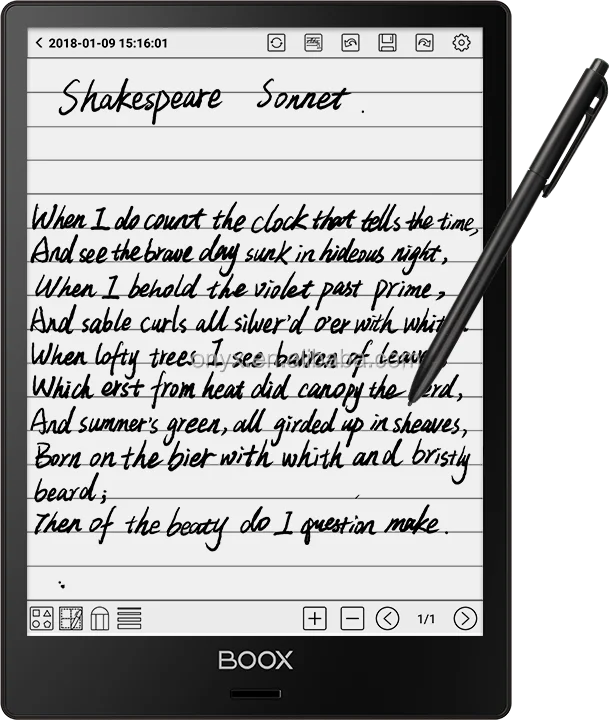 2018-01-09 15:16:01
Shakespeare Sonnet .
When I do count the clock that tells the time,
And see the brave day sunk in hideous night,
When I behold the violet past prime,
And sable curls all silver'd o'er with
When lofty trees I see barren of
Which erst from heat did canopy the
And summer's green, all girded up in sheaves,
Born on the bier with whith and bristly
beard;
Then of the beaty do I question make.
1/1
BOOX